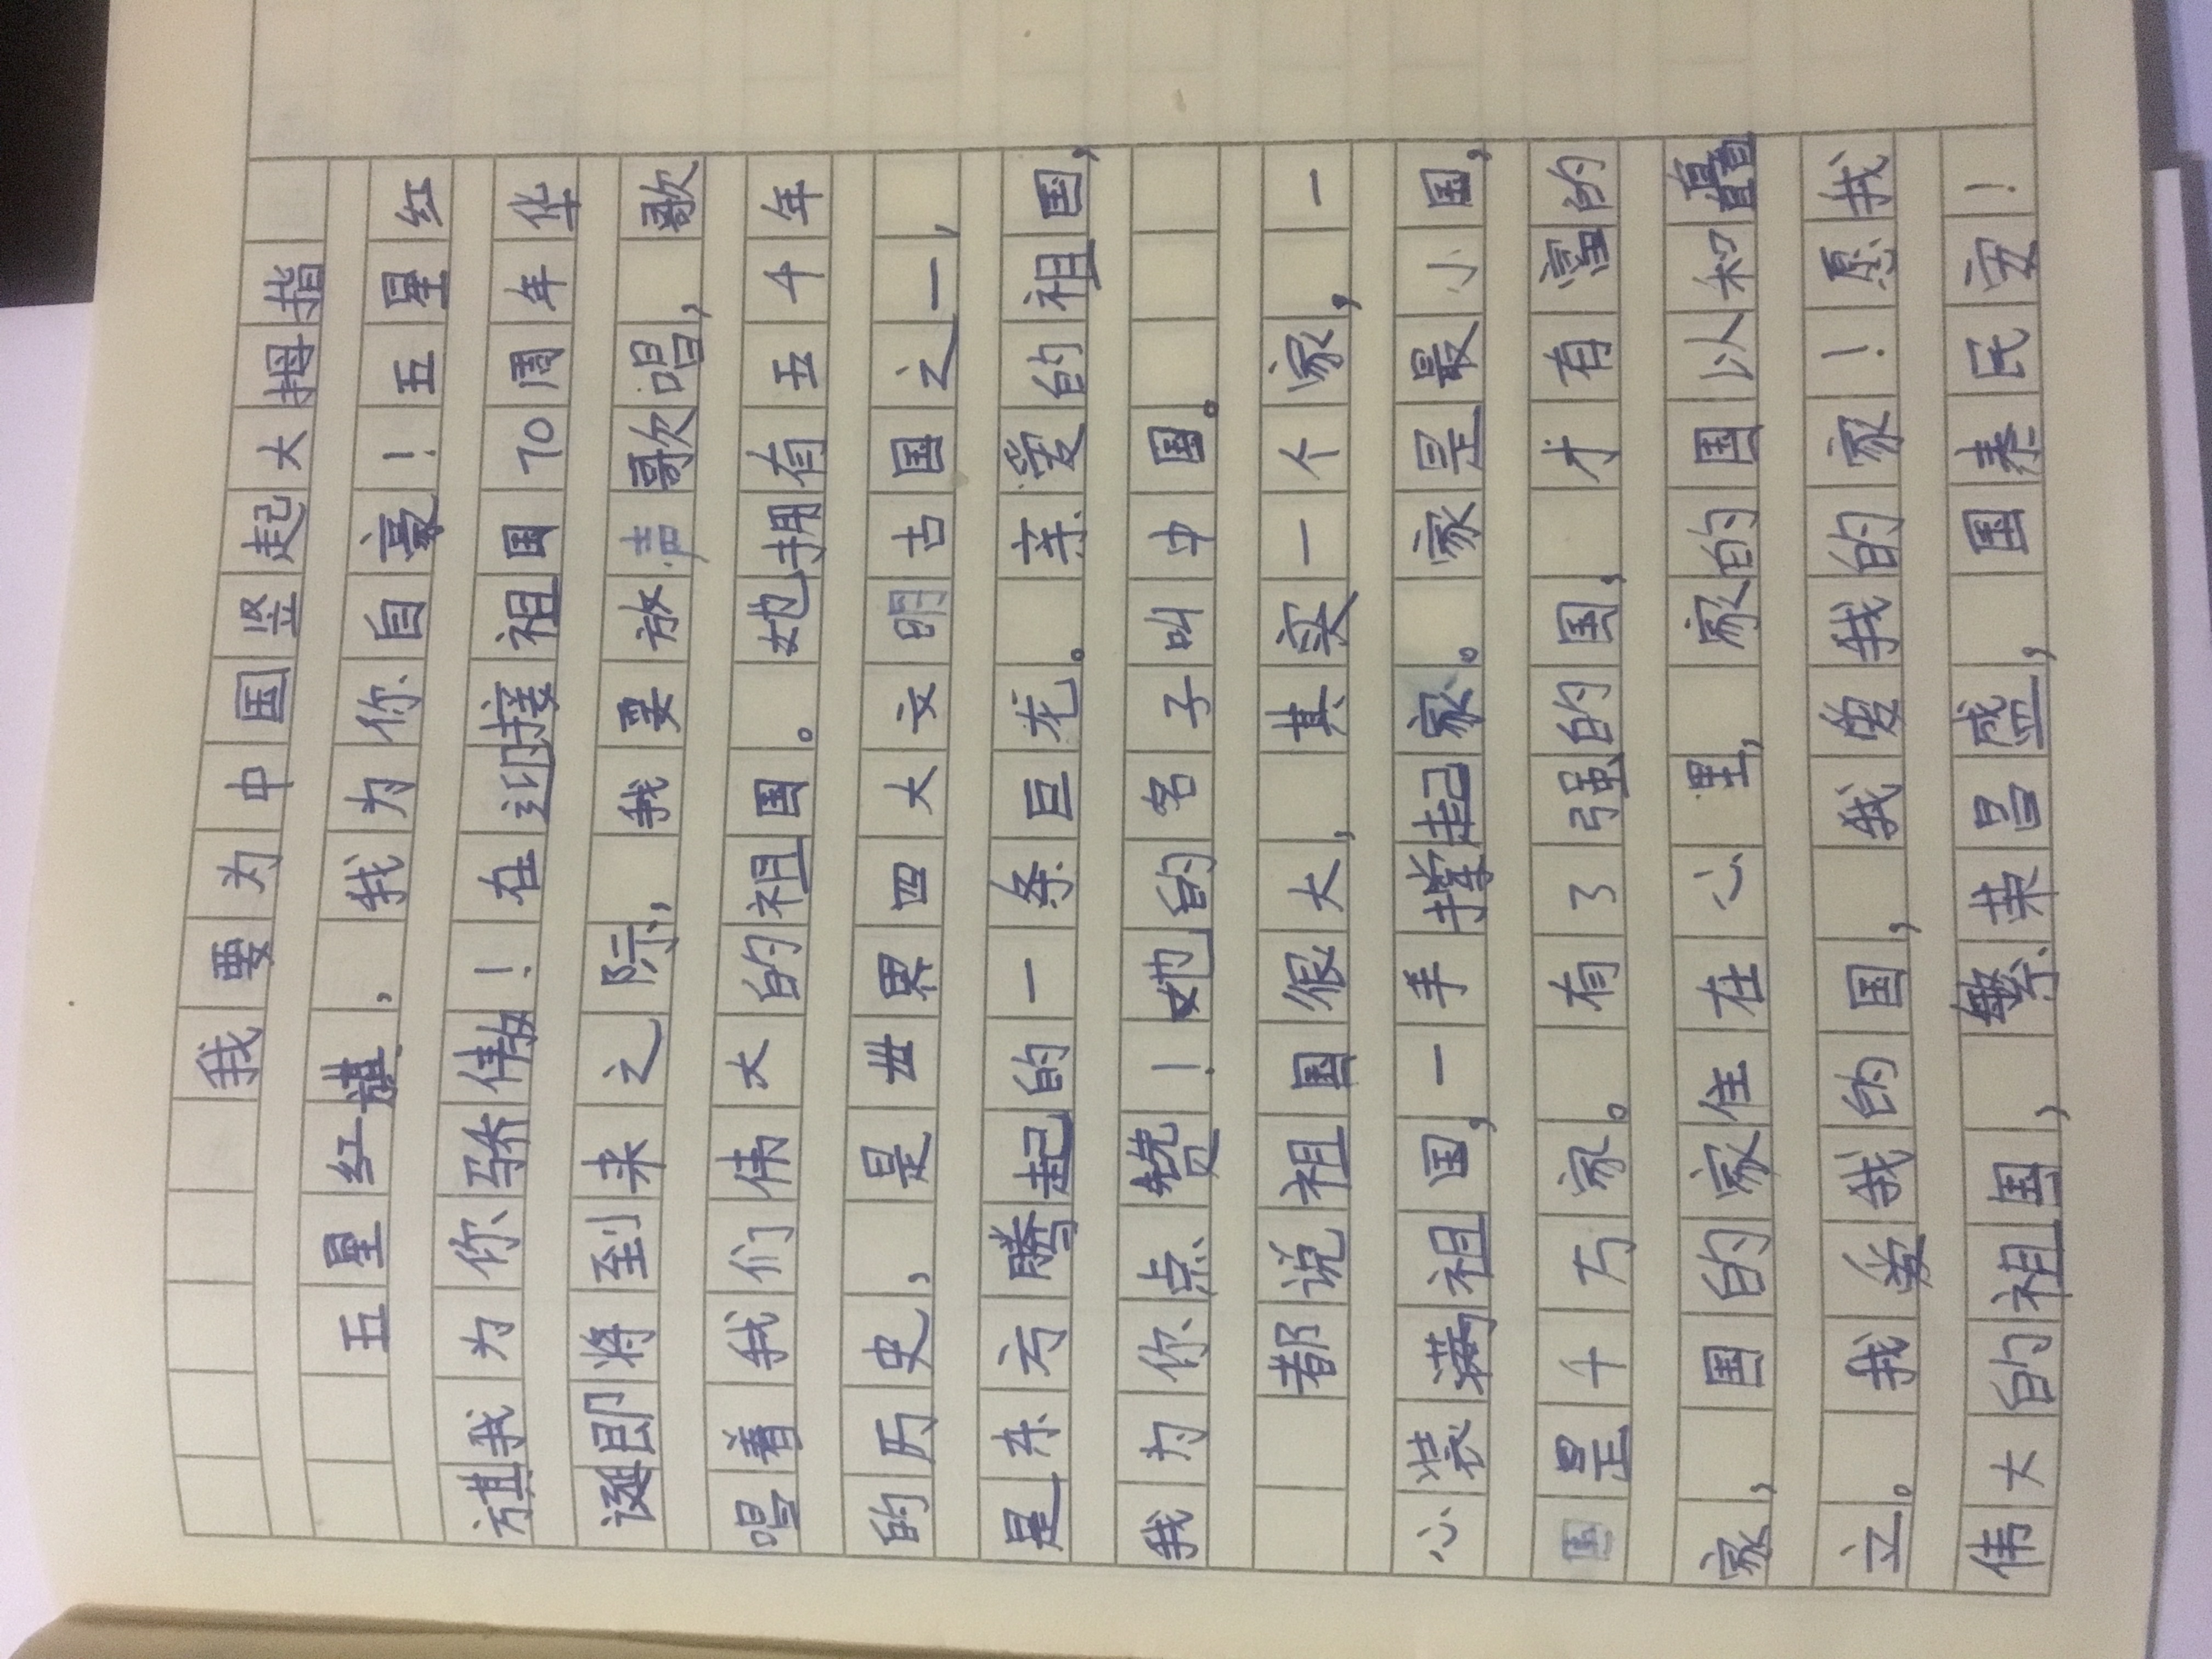 我要为中国竖起大拇指
五星红旗，我为你自豪！五星红
旗我为你骄傲！在迎接祖国70周年华
诞即将到来之际，我要放声歌唱，歌
唱着我们伟大的祖国。她拥有五千年
的历史，是世界四大文明古国之一，
是东方腾起的一条巨龙。亲爱的祖国，
我为你点赞！她的名子叫中国。
都说祖国很大，其实一个家，一
心装满祖国，一手撑起家。家是最小国，
国是千万家。有了强的国，才有富的
家，国的家住在心里，家的国以和矗
立。我爱我的国，我爱我的家！愿我
伟大的祖国，繁荣昌盛，国泰民安！